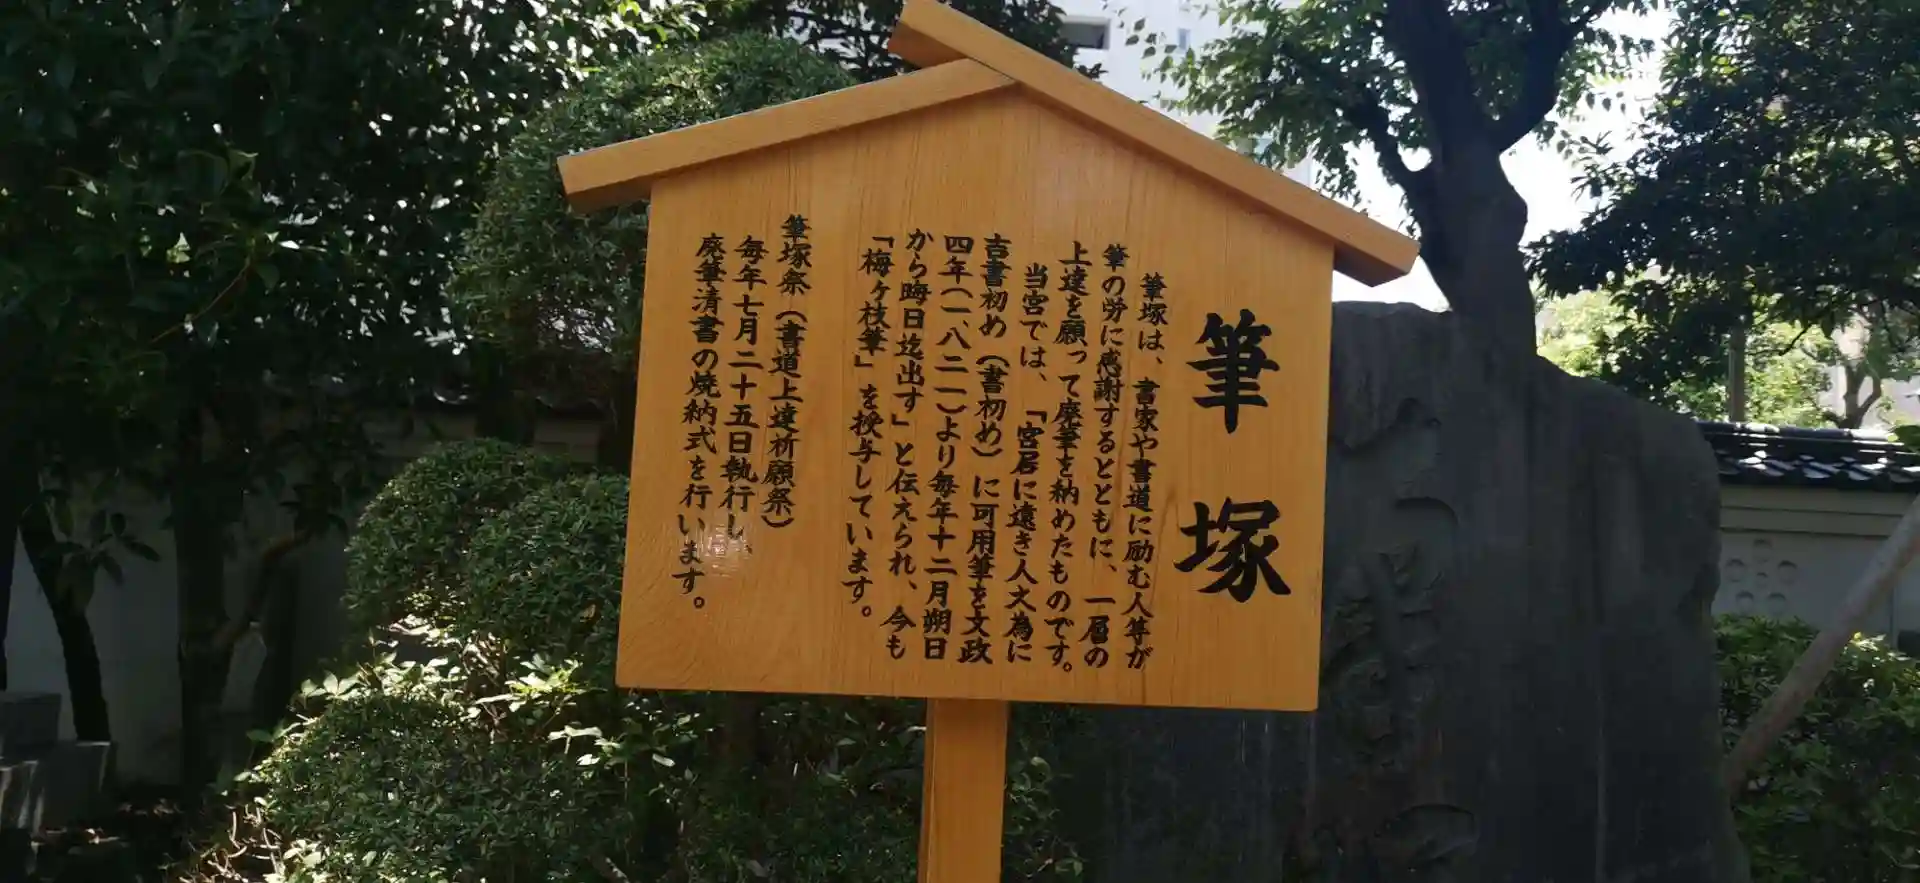 筆塚
筆塚は、書家や書道に励む人等が
筆の労に感謝するとともに、一層の
上達を願って廃筆を納めたものです。
当宮では、「宮居に遠き人文為に
吉書初め（書初め）に可用筆を文政
四年（一八二一）より毎年十二月朔日
から晦日迄出す」と伝えられ、今も
「梅ヶ枝筆」を授与しています。
筆塚祭（書道上達祈願祭）
毎年七月二十五日執行し、
廃筆清書の焼納式を行います。